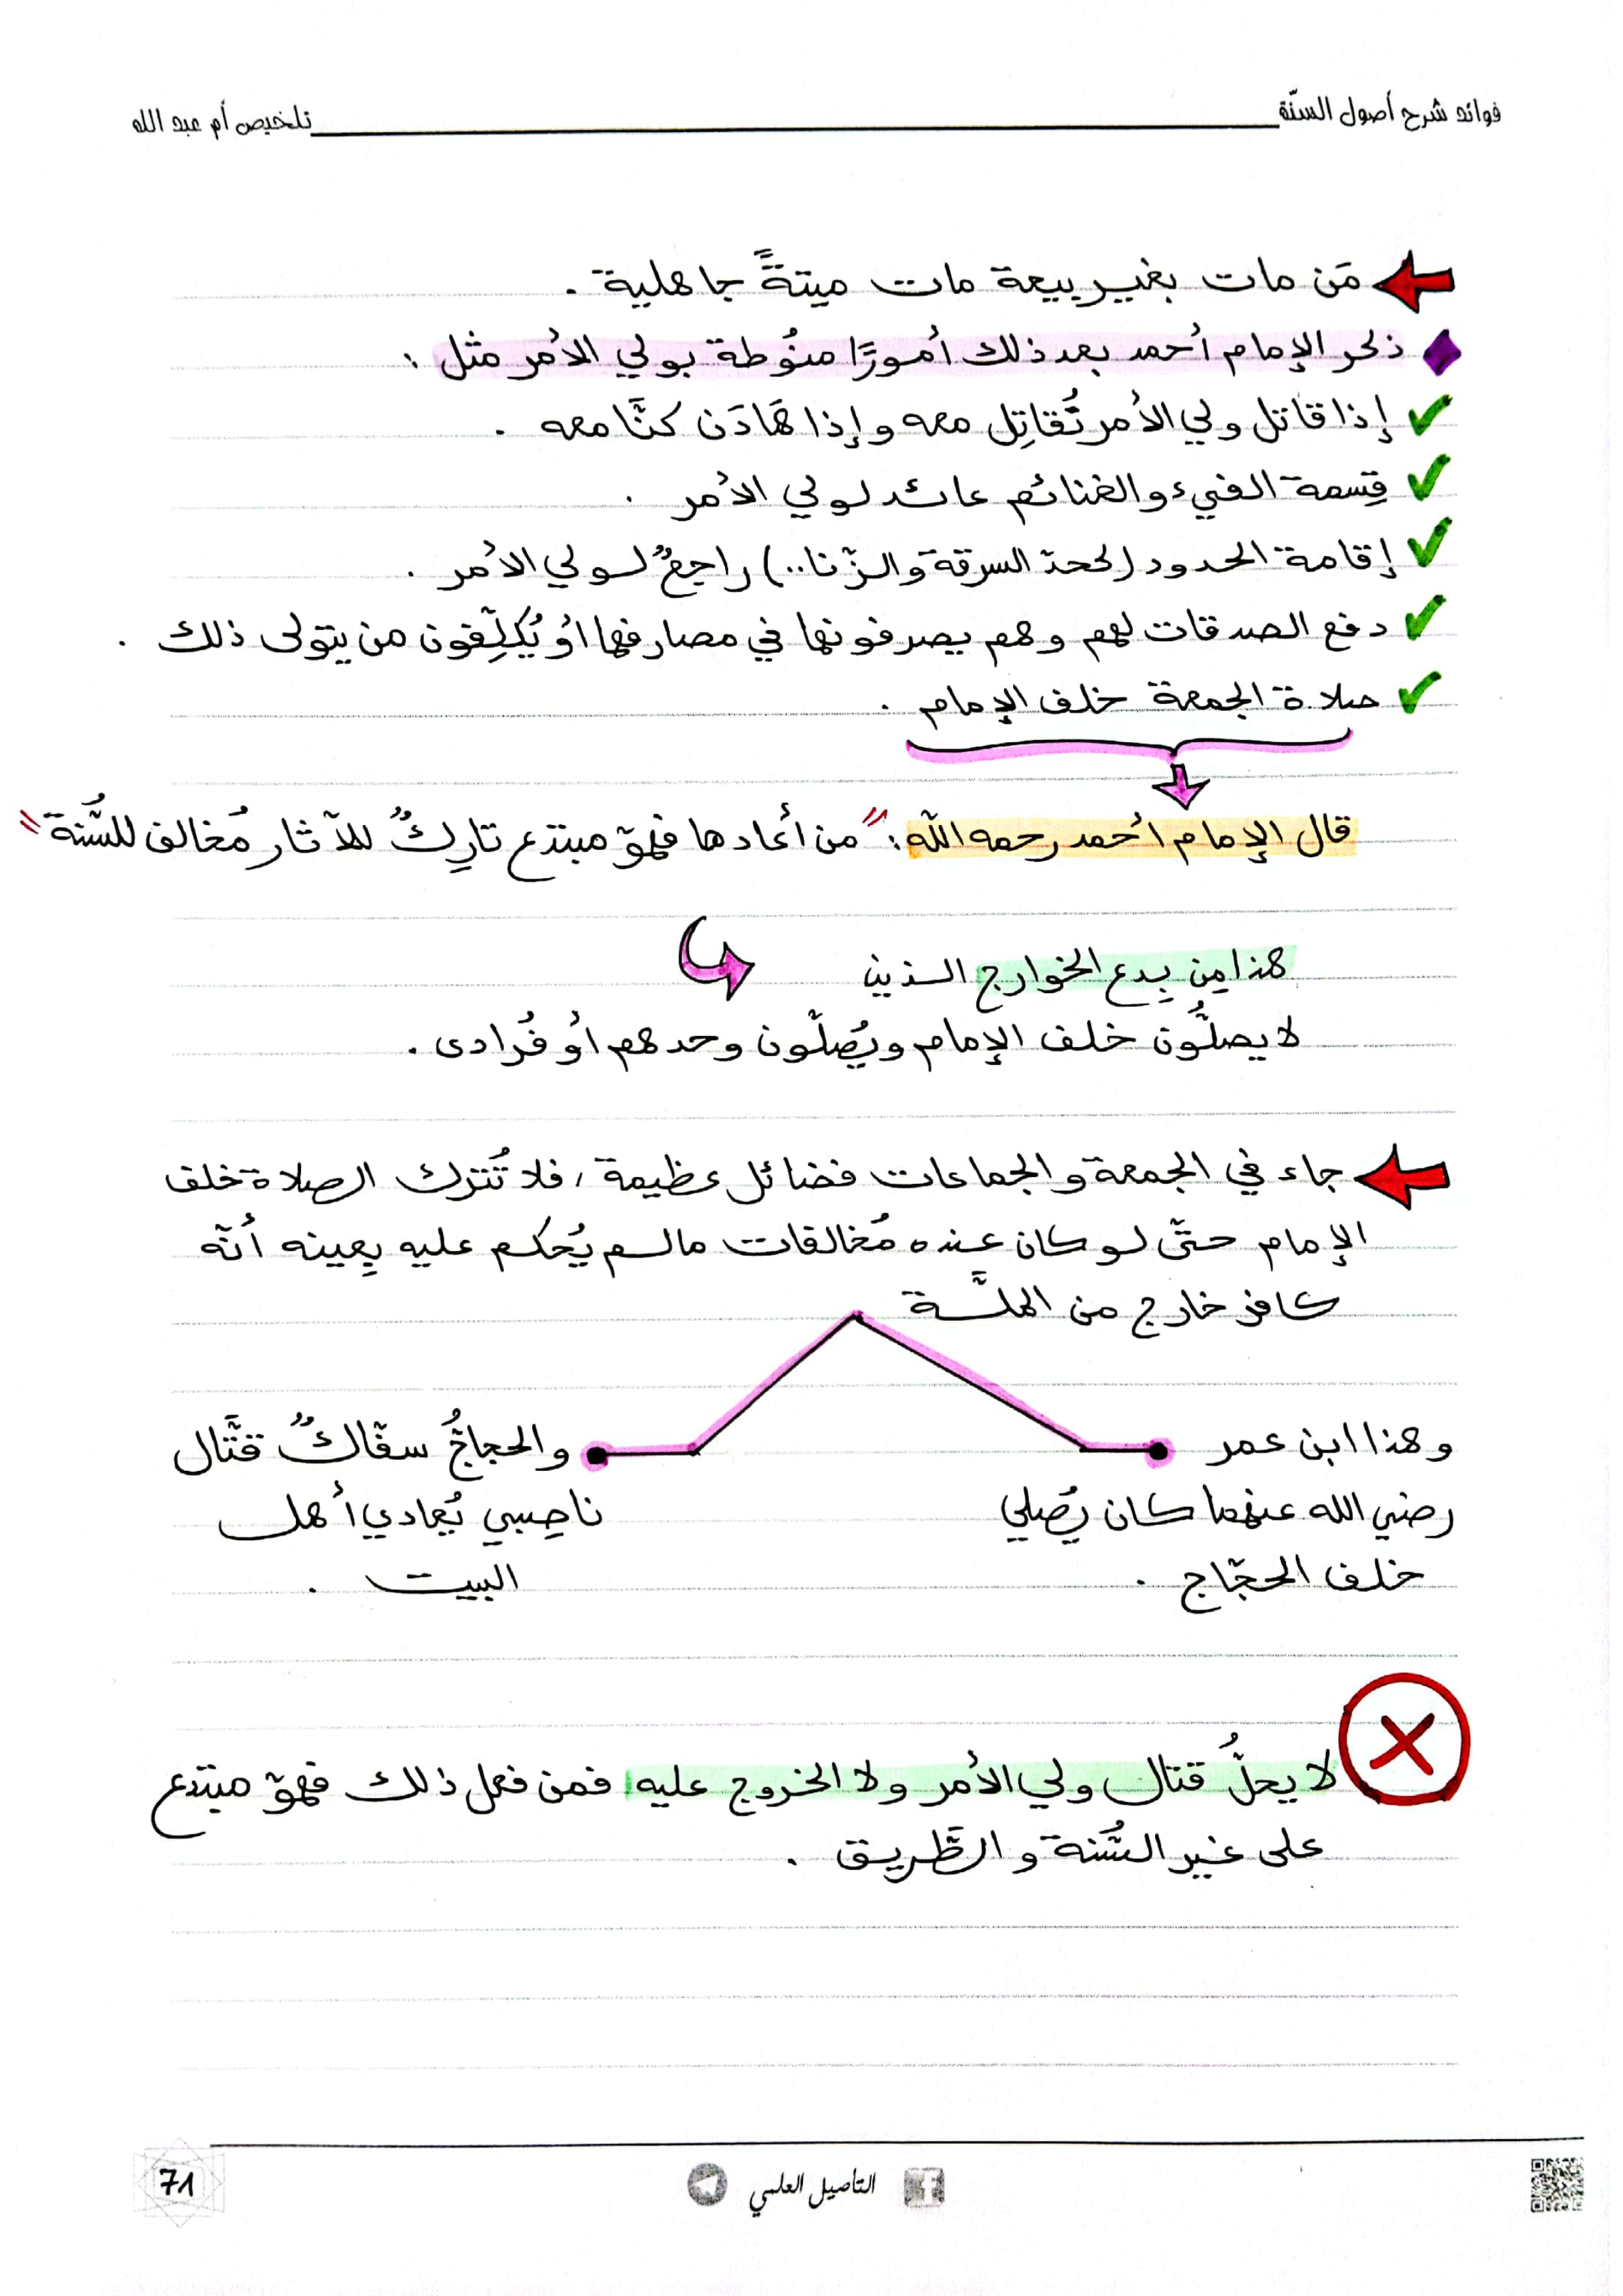 فوائد شرح أصول السنّة
تلخيص أم عبد الله
مَن مات بغير بيعة مات ميتةً جاهلية .
ذكر الإمام أحمد بعد ذلك أمورًا منوُطة بولي الأمر مثل :
إذا قاتل ولي الأمر نُقاتِل معه وإذا هَادَن كنَّا معه .
قِسمة الفيء والغنائم عائد لولي الأمر .
إقامة الحدود (كحدّ السرقة والزّنا..) راجعٌ لولي الأمر .
دفع الصدقات لهم وهم يصرفونها في مصارفها أو يُكلِّفون من يتولى ذلك .
صلاة الجمعة خلف الإمام .
قال الإمام أحمد رحمه اللّه : "من أعادها فهوَ مبتدع تارِكٌ للآثار مُخالف للسُّنة"
هذا مِن بِدع الخوارج الذين
لا يصلُّون خلف الإمام ويُصلّون وحدهم أو فُرادى .
جاء في الجمعة والجماعات فضائل عظيمة ، فلا تُترك الصلاة خلف
الإمام حتّى لو كان عنده مُخالفات مالم يُحكم عليه بِعينه أنّه
كافر خارج من الملَّة
وهذا ابن عمر
رضي الله عنهما كان يُصلي
خلف الحجّاج .
والحجاجُ سفّاكٌ قتَّال
ناصِبي يُعادي أهل
البيت .
لا يحلُّ قتال ولي الأمر ولا الخروج عليه فمن فعل ذلك فهوَ مبتدع
على غير السُّنة والطَّريق .
التأصيل العلمي
71